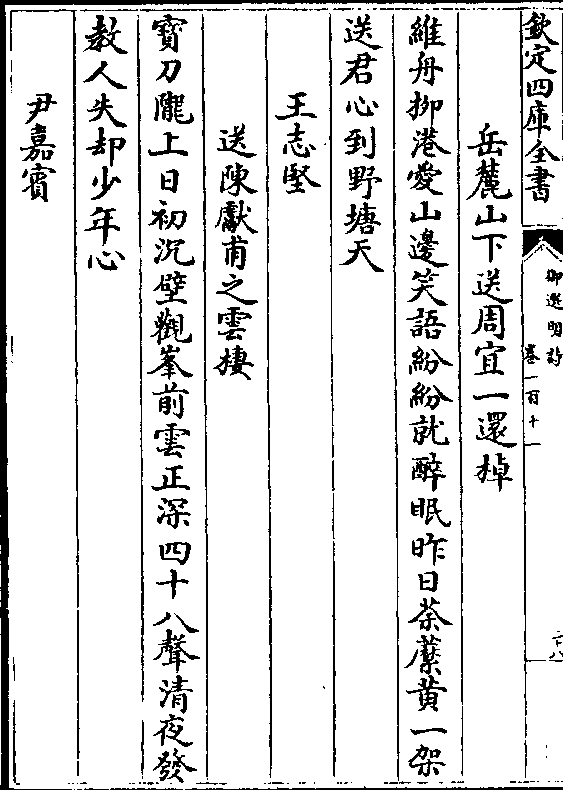 欽定四庫全書
御選明詩
卷一百十一
岳麓山下送周宜一還棹
維舟抑港愛山邊笑語紛紛就醉眠昨日荼蘪黄一架
送君心到野塘天
王志堅
送陳獻甫之雲棲
寳刀隴上日初沉壁觀峯前雲正深四十八聲清夜發
教人失却少年心
尹嘉賓